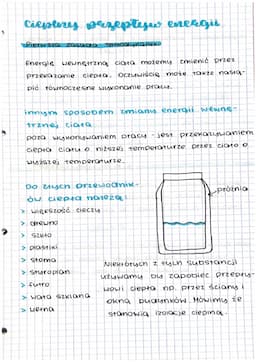 Cieplny przepływ energii
Energię wewnętrzną ciała możemy zmienić przez
przekazanie ciepła. Oczywiście może także nastą-
pić równoczesne wykonanie pracy.
innym sposobem zmiany energii wewnę-
trznej ciała
poza wykonywaniem pracy - jest przekazywaniem
ciepła ciału o niższej temperaturze przez ciało o
wyższej temperaturze.
Do złych przewodnik-
ów ciepła należą:
> większość cieczy
> drewno
> szkło
> plastiki
> słoma
> styropian
> futro
> wata szklana
> wełna
próżnia
Niektórych z tych substancji
używamy by zapobiec przepły-
wowi ciepła np. przez ściany i
okna budynków. Mówimy że
stanowią izolację cieplną.